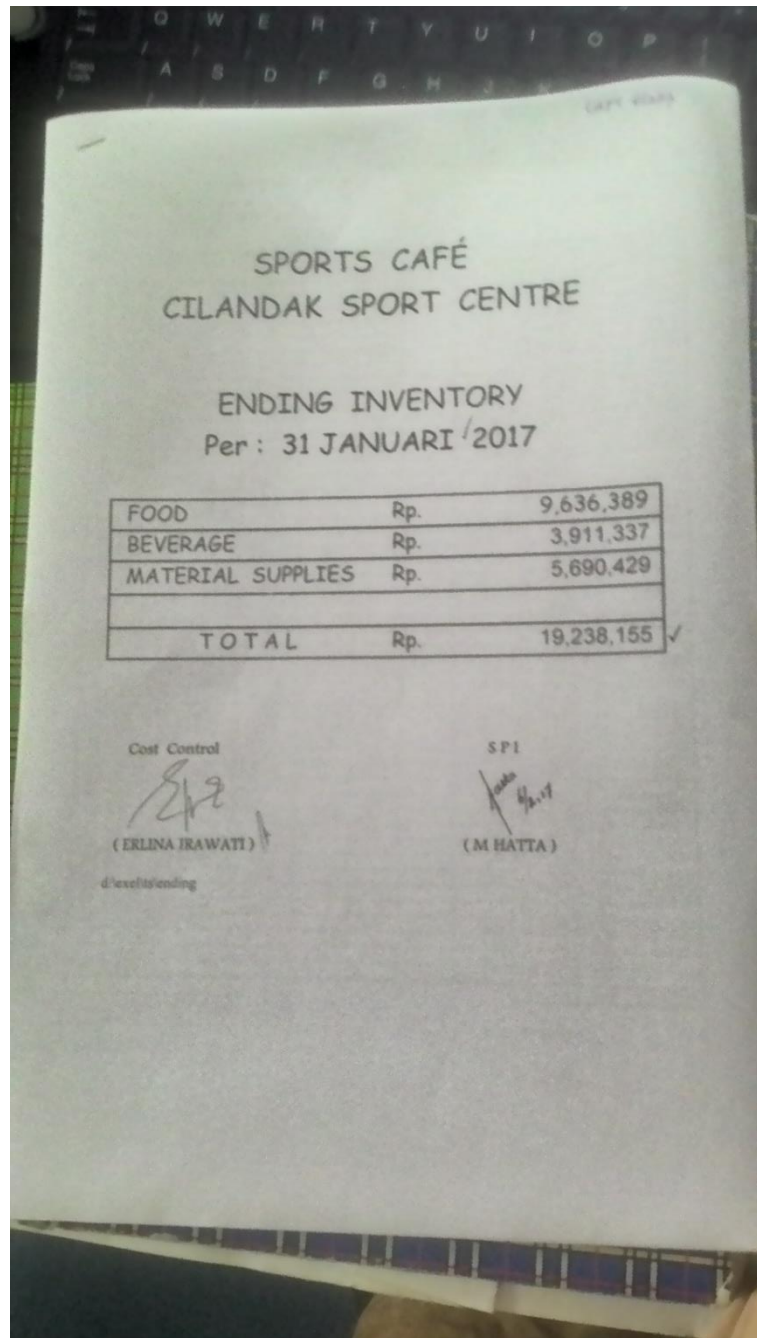 Q W E R T Y U I O P
A S D F G H J
SPORTS CAFÉ
CILANDAK SPORT CENTRE
ENDING INVENTORY
Per : 31 JANUARI 2017
FOOD Rp. 9,636,389
BEVERAGE Rp. 3,911,337
MATERIAL SUPPLIES Rp. 5,690,429
TOTAL Rp. 19,238,155 ✓
Cost Control SPI
(ERLINA IRAWATI) (M HATTA)